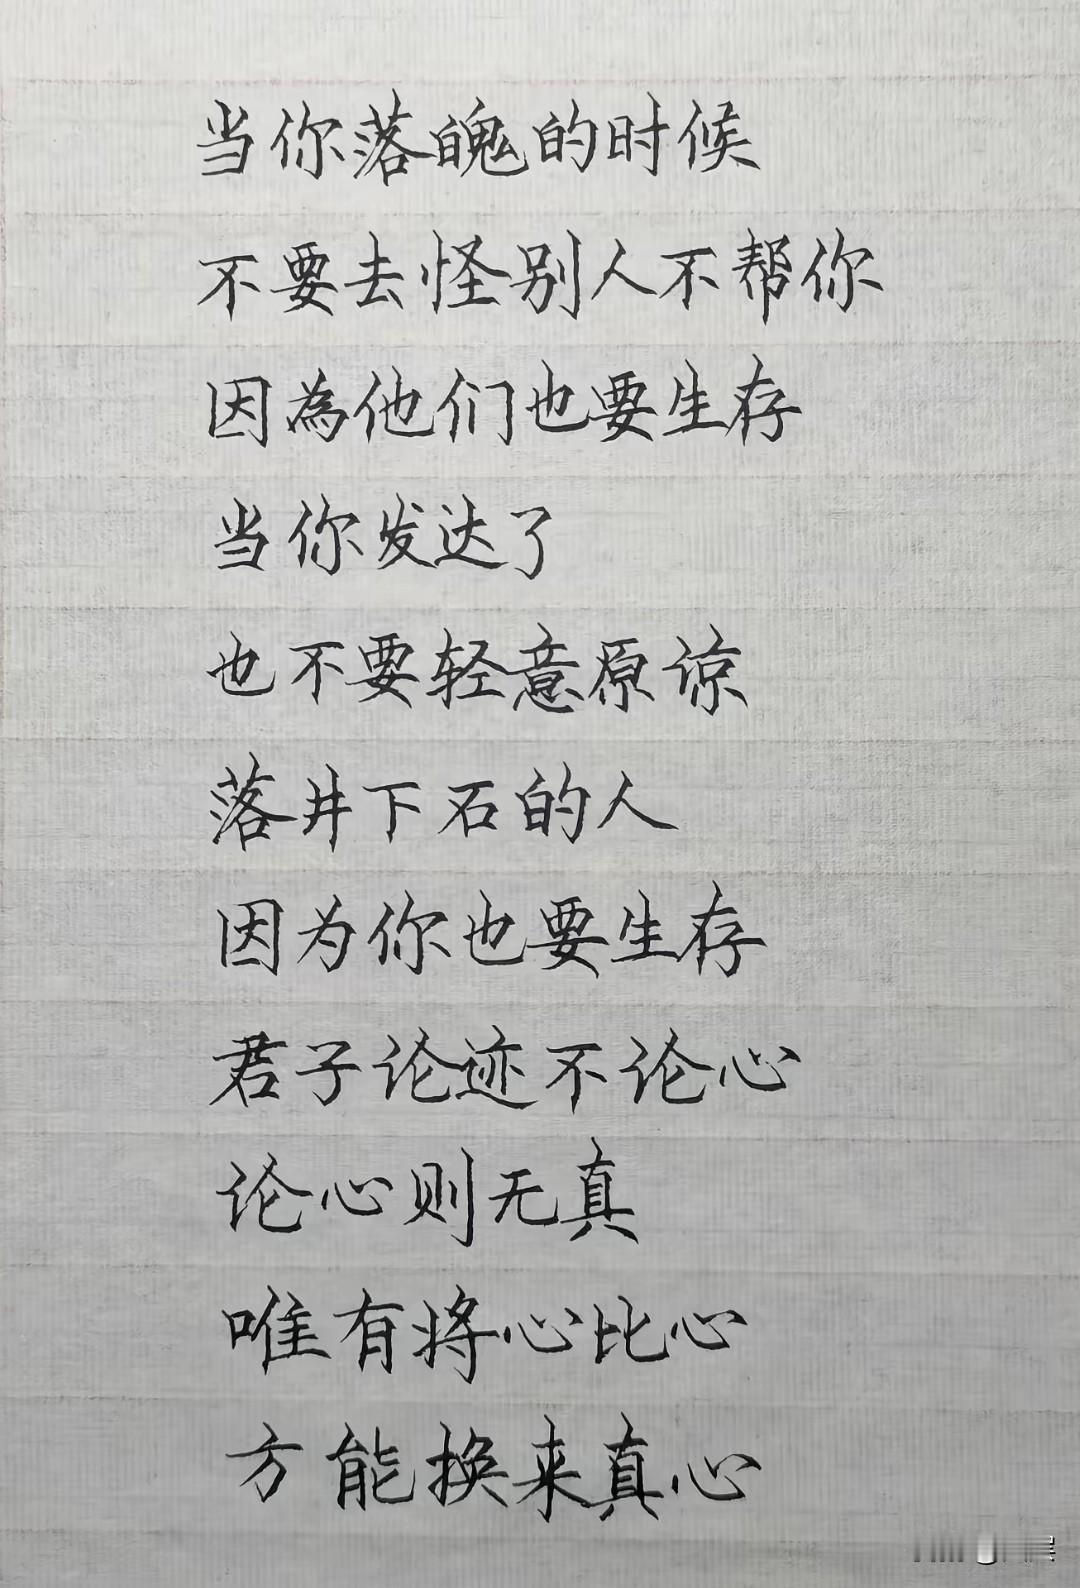 当你落魄的时候
不要去怪别人不帮你
因為他们也要生存
当你发达了
也不要轻意原谅
落井下石的人
因为你也要生存
君子论迹不论心
论心则无真
唯有将心比心
方能换来真心